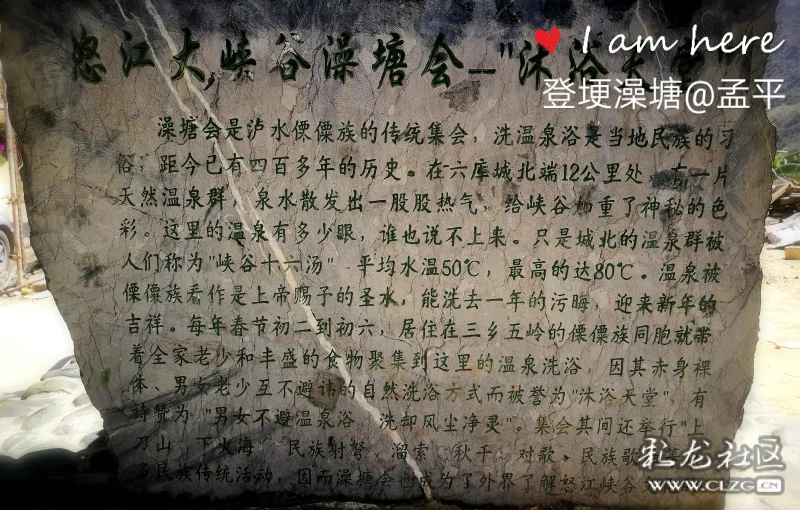 I am here
登埂澡塘@孟平
怒江大峡谷澡塘会--"沐浴天堂"
澡塘会是泸水傈僳族的传统集会，洗温泉浴是当地民族的习
俗，距今已有四百多年的历史。在六库城北端12公里处，有一片
天然温泉群，泉水散发出一股股热气，给峡谷加重了神秘的色
彩。这里的温泉有多少眼，谁也说不上来。只是城北的温泉群被
人们称为"峡谷十六汤"，平均水温50℃，最高的达80℃。温泉被
傈僳族看作是上帝赐予的圣水，能洗去一年的污晦，迎来新年的
吉祥。每年春节初二到初六，居住在三乡五岭的傈僳族同胞就带
着全家老少和丰盛的食物聚集到这里的温泉洗浴，因其赤身裸
体、男女老少互不避讳的自然洗浴方式而被誉为"沐浴天堂"，有
诗赞为："男女不避温泉浴，洗却风尘净灵"。集会其间还举行"上
刀山，下火海"、民族射弩、溜索、秋千、对歌、民族歌
民族传统活动，因而澡塘会也成为了外界了解怒江峡谷
彩龙社区
WWW.CLZG.CN